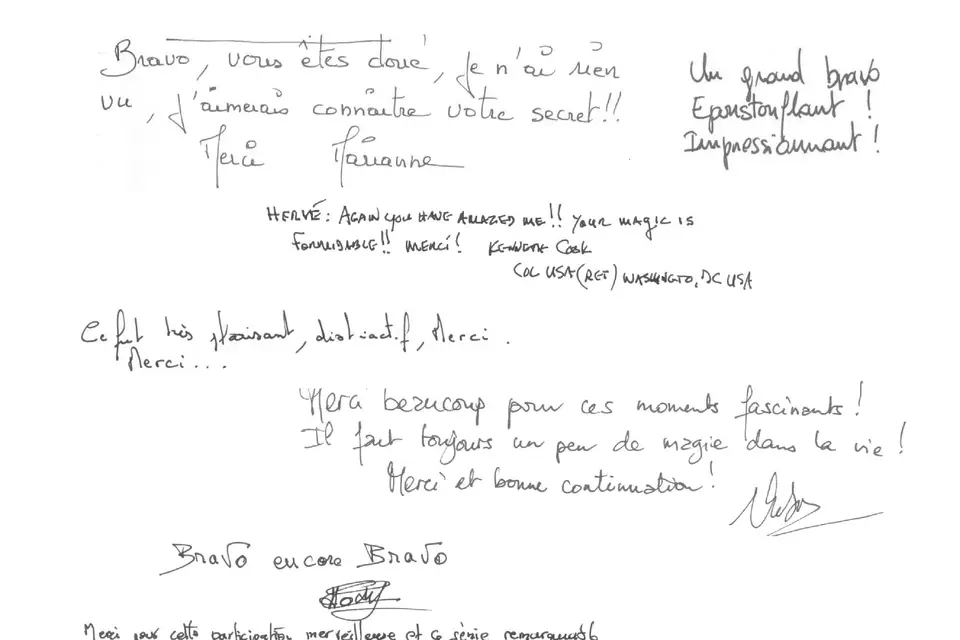 Bravo, vous êtes doué, je n'ai rien
vu, j'aimerais connaître votre secret!!
Merci Marianne
Un grand bravo
Epoustouflant !
Impressionnant !
HERVÉ: AGAIN YOU HAVE AMAZED ME!! YOUR MAGIC IS
FORMIDABLE!! MERCI! KENNETH COOK
COL USA (RET) WASHINGTO, DC USA
Ce fut très plaisant, distractif, Merci.
Merci...
Merci beaucoup pour ces moments fascinants!
Il faut toujours un peu de magie dans la vie!
Merci et bonne continuation!
Bravo encore Bravo
Merci pour cette participation merveilleuse et